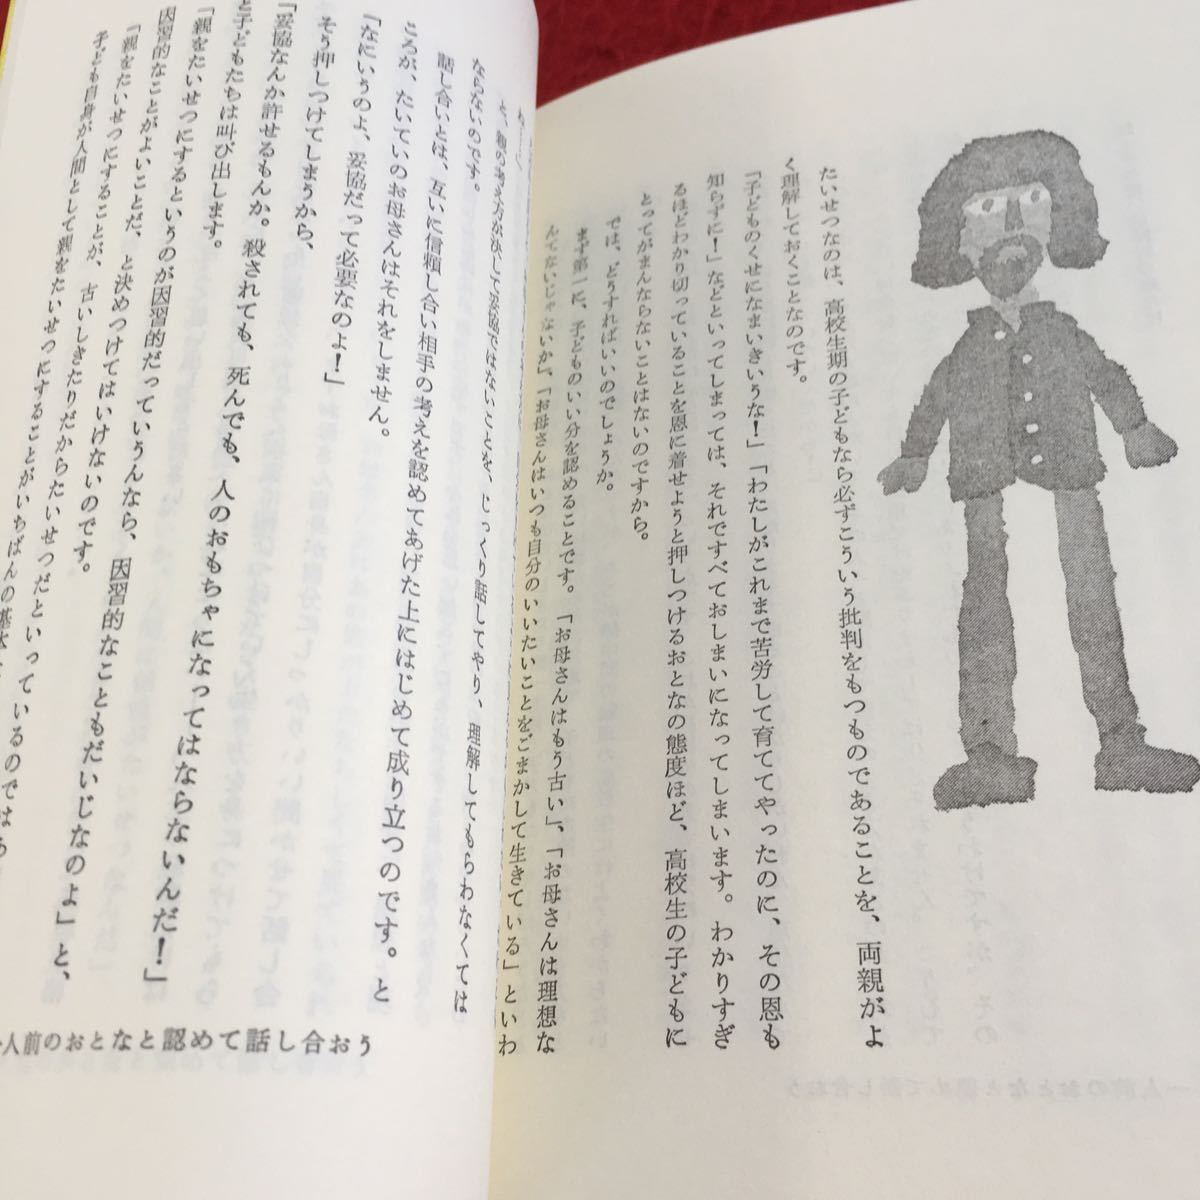 たいせつなのは、高校生期の子どもなら必ずこういう批判をもつものであることを、両親がよ
く理解しておくことなのです。
「子どものくせになまいきいうな!」「わたしがこれまで苦労して育ててやったのに、その恩も
知らずに!」などといってしまっては、それですべておしまいになってしまいます。わかりすぎ
るほどわかり切っていることを恩に着せようと押しつけるおとなの態度ほど、高校生の子どもに
とってがまんならないことはないのですから。
では、どうすればいいのでしょうか。
まず第一に、子どものいい分を認めることです。「お母さんはもう古い」、「お母さんは理想な
んてないじゃないか」、「お母さんはいつも自分のいいたいことをごまかして生きている」といわ
と、親の考え方が決して妥協ではないことを、じっくり話してやり、理解してもらわなくては
ならないのです。
話し合いとは、互いに信頼し合い相手の考えを認めてあげた上にはじめて成り立つのです。と
ころが、たいていのお母さんはそれをしません。
「なにいうのよ、妥協だって必要なのよ!」
そう押しつけてしまうから、
「妥協なんか許せるもんか。殺されても、死んでも、人のおもちゃになってはならないんだ!」
と子どもたちは叫び出します。
「親をたいせつにするというのが因習的だっていうんなら、因習的なこともだいじなのよ」と、
因習的なことがよいことだ、と決めつけてはいけないのです。
「親をたいせつにすることが、古いしきたりだからたいせつだといっているのではら
子ども自身が人間として親をたいせつにすることがいちばんの基本
一人前のおとなと認めて話し合おう